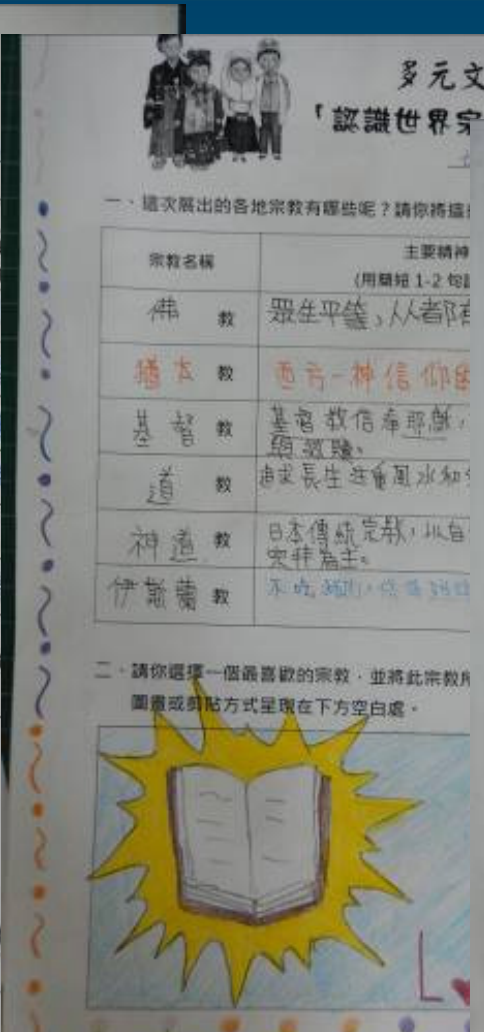 多元文
「認識世界宗
一、這次展出的各地宗教有哪些呢？請你將這
宗教名稱
主要精神
(用簡短 1-2 句
佛 教
眾生平等，人人都有
猶太 教
西方一神信仰的
基督 教
基督教信奉耶穌，
道 教
追求長生注重風水和
神道 教
日本傳統宗教，以自
為主。
伊斯蘭 教
不吃豬肉，信
二、請你選擇一個最喜歡的宗教，並將此宗教所
圖畫或剪貼方式呈現在下方空白處。
L